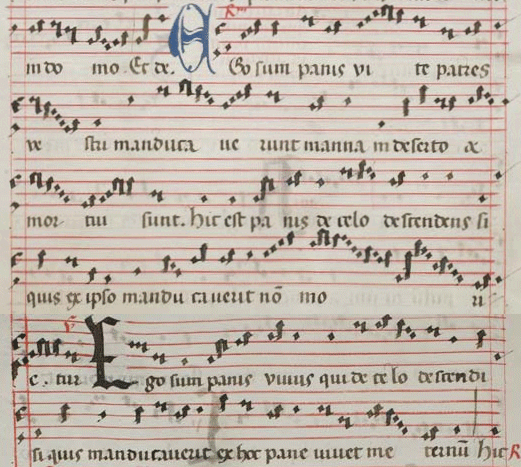 in do mo. Et de. Rm Ego sum panis vi te patres
ve stri manduca ve runt manna in deserto &
mor tui sunt. hic est pa nis de celo descendens si
quis ex ipso mandu caverit nō mo ri
e. tur V Ego sum panis vivus qui de ce lo descendi
si quis manducaverit ex hoc pane vivet me ternū hic R